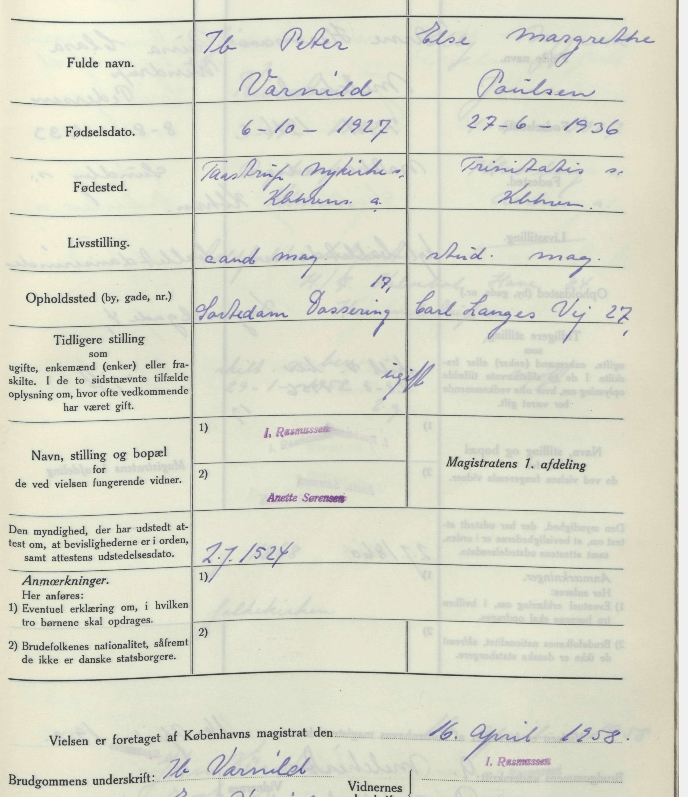 Fulde navn.
Ib Peter
Varnild
Else Margrethe
Poulsen
Fødselsdato.
6-10-1927
27-6-1936
Fødested.
Taastrup Nykirke s.
Kbhvns. a.
Trinitatis s.
Kbhvn.
Livsstilling.
cand mag.
stud. mag.
Opholdssted (by, gade, nr.)
17,
Sortedam Dossering
Carl Langes Vej 27,
Tidligere stilling
som
ugifte, enkemænd (enker) eller fra-
skilte. I de to sidstnævnte tilfælde
oplysning om, hvor ofte vedkommende
har været gift.
ugift
Navn, stilling og bopæl
for
de ved vielsen fungerende vidner.
1)
I. Rasmussen
2)
Anette Sørensen
Magistratens 1. afdeling
Den myndighed, der har udstedt at-
test om, at bevislighederne er i orden,
samt attestens udstedelsesdato.
2.J.1524
Anmærkninger.
Her anføres:
1) Eventuel erklæring om, i hvilken
tro børnene skal opdrages.
2) Brudefolkenes nationalitet, såfremt
de ikke er danske statsborgere.
1)
2)
Vielsen er foretaget af Københavns magistrat den
16. April 1958.
Brudgommens underskrift:
Ib Varnild
Vidnernes
I. Rasmussen